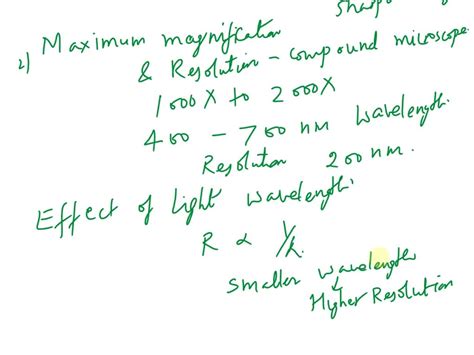 2) Maximum magnification
& Resolution - compound microscope
1000X to 2000X
400 - 700 nm wavelength.
Resolution 200 nm.
Effect of light wavelength.
R ∝ 1/λ.
smaller wavelength
Higher Resolution